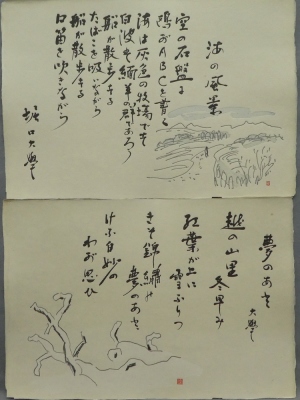 海の風景
空の石盤に
鴎がABCを書く
海は灰色の牧場です
白波は緬羊の群であらう
船が散歩する
たばこを吸ひながら
船が散歩する
口笛を吹きながら
堀口大學
夢のあと
大學
越の山里
冬早み
紅葉が上に
雪ふりつ
きそ錦繍や
夢のあと
けふ白妙の
わが思ひ